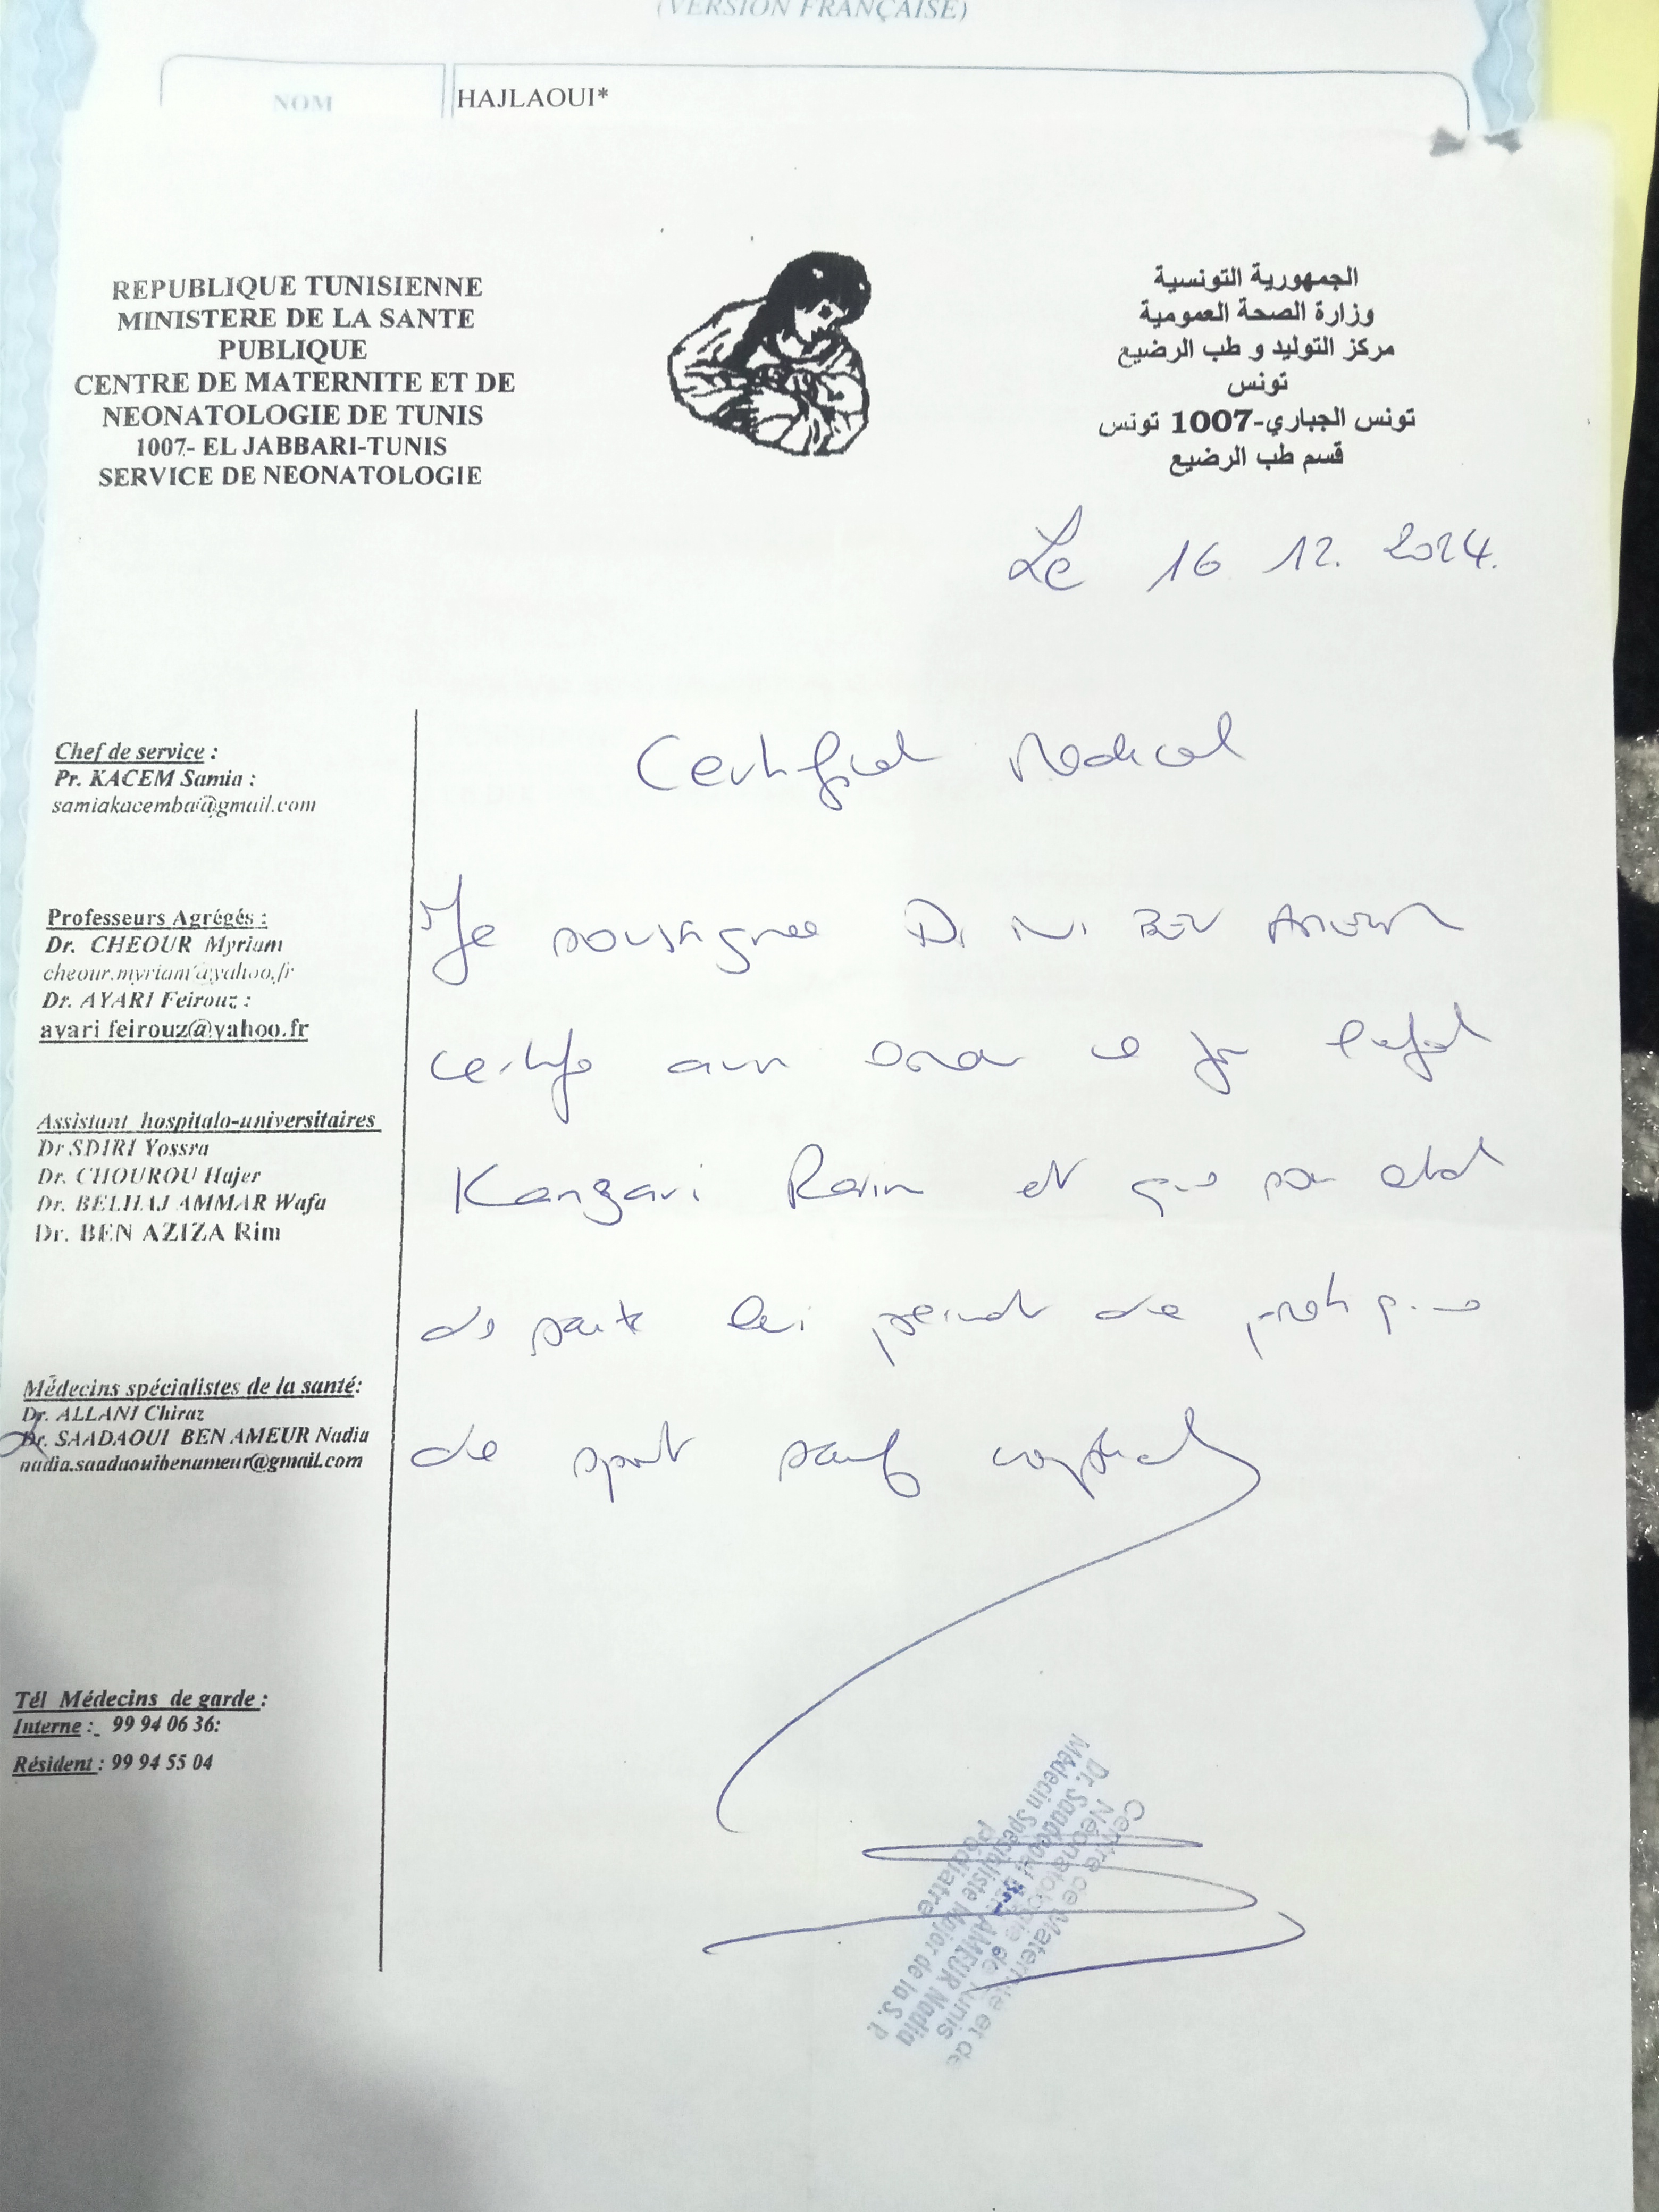 (VERSION FRANÇAISE)
NOM
HAJLAOUI*
REPUBLIQUE TUNISIENNE
MINISTERE DE LA SANTE
PUBLIQUE
CENTRE DE MATERNITE ET DE
NEONATOLOGIE DE TUNIS
1007- EL JABBARI-TUNIS
SERVICE DE NEONATOLOGIE
الجمهورية التونسية
وزارة الصحة العمومية
مركز التوليد و طب الرضيع
تونس
تونس الجباري-1007 تونس
قسم طب الرضيع
Le 16 12. 2024.
Chef de service :
Pr. KACEM Samia :
samiakacemba@gmail.com
Professeurs Agrégés :
Dr. CHEOUR Myriam
cheour.myriam@yahoo.fr
Dr. AYARI Feirouz :
ayari feirouz@yahoo.fr
Assistant hospitalo-universitaires
Dr SDIRI Yossra
Dr. CHOUROU Hajer
Dr. BELHAJ AMMAR Wafa
Dr. BEN AZIZA Rim
Médecins spécialistes de la santé:
Dr. ALLANI Chiraz
Dr. SAADAOUI BEN AMEUR Nadia
nadia.saadaouibenameur@gmail.com
Tél Médecins de garde :
Interne : 99 94 06 36:
Résident : 99 94 55 04
Certificat Medical
Je soussignee Dr N. BEN AMEUR
certifie avoir ce jour l'enfant
Kanzari et que son etat
de sante lui permet de pratique
de sport sauf
Centre de Maternité et de
Néonatologie de Tunis
Dr. Saadaoui BEN AMEUR Nadia
Médecin Spécialiste Major de la S. P.
Pédiatre